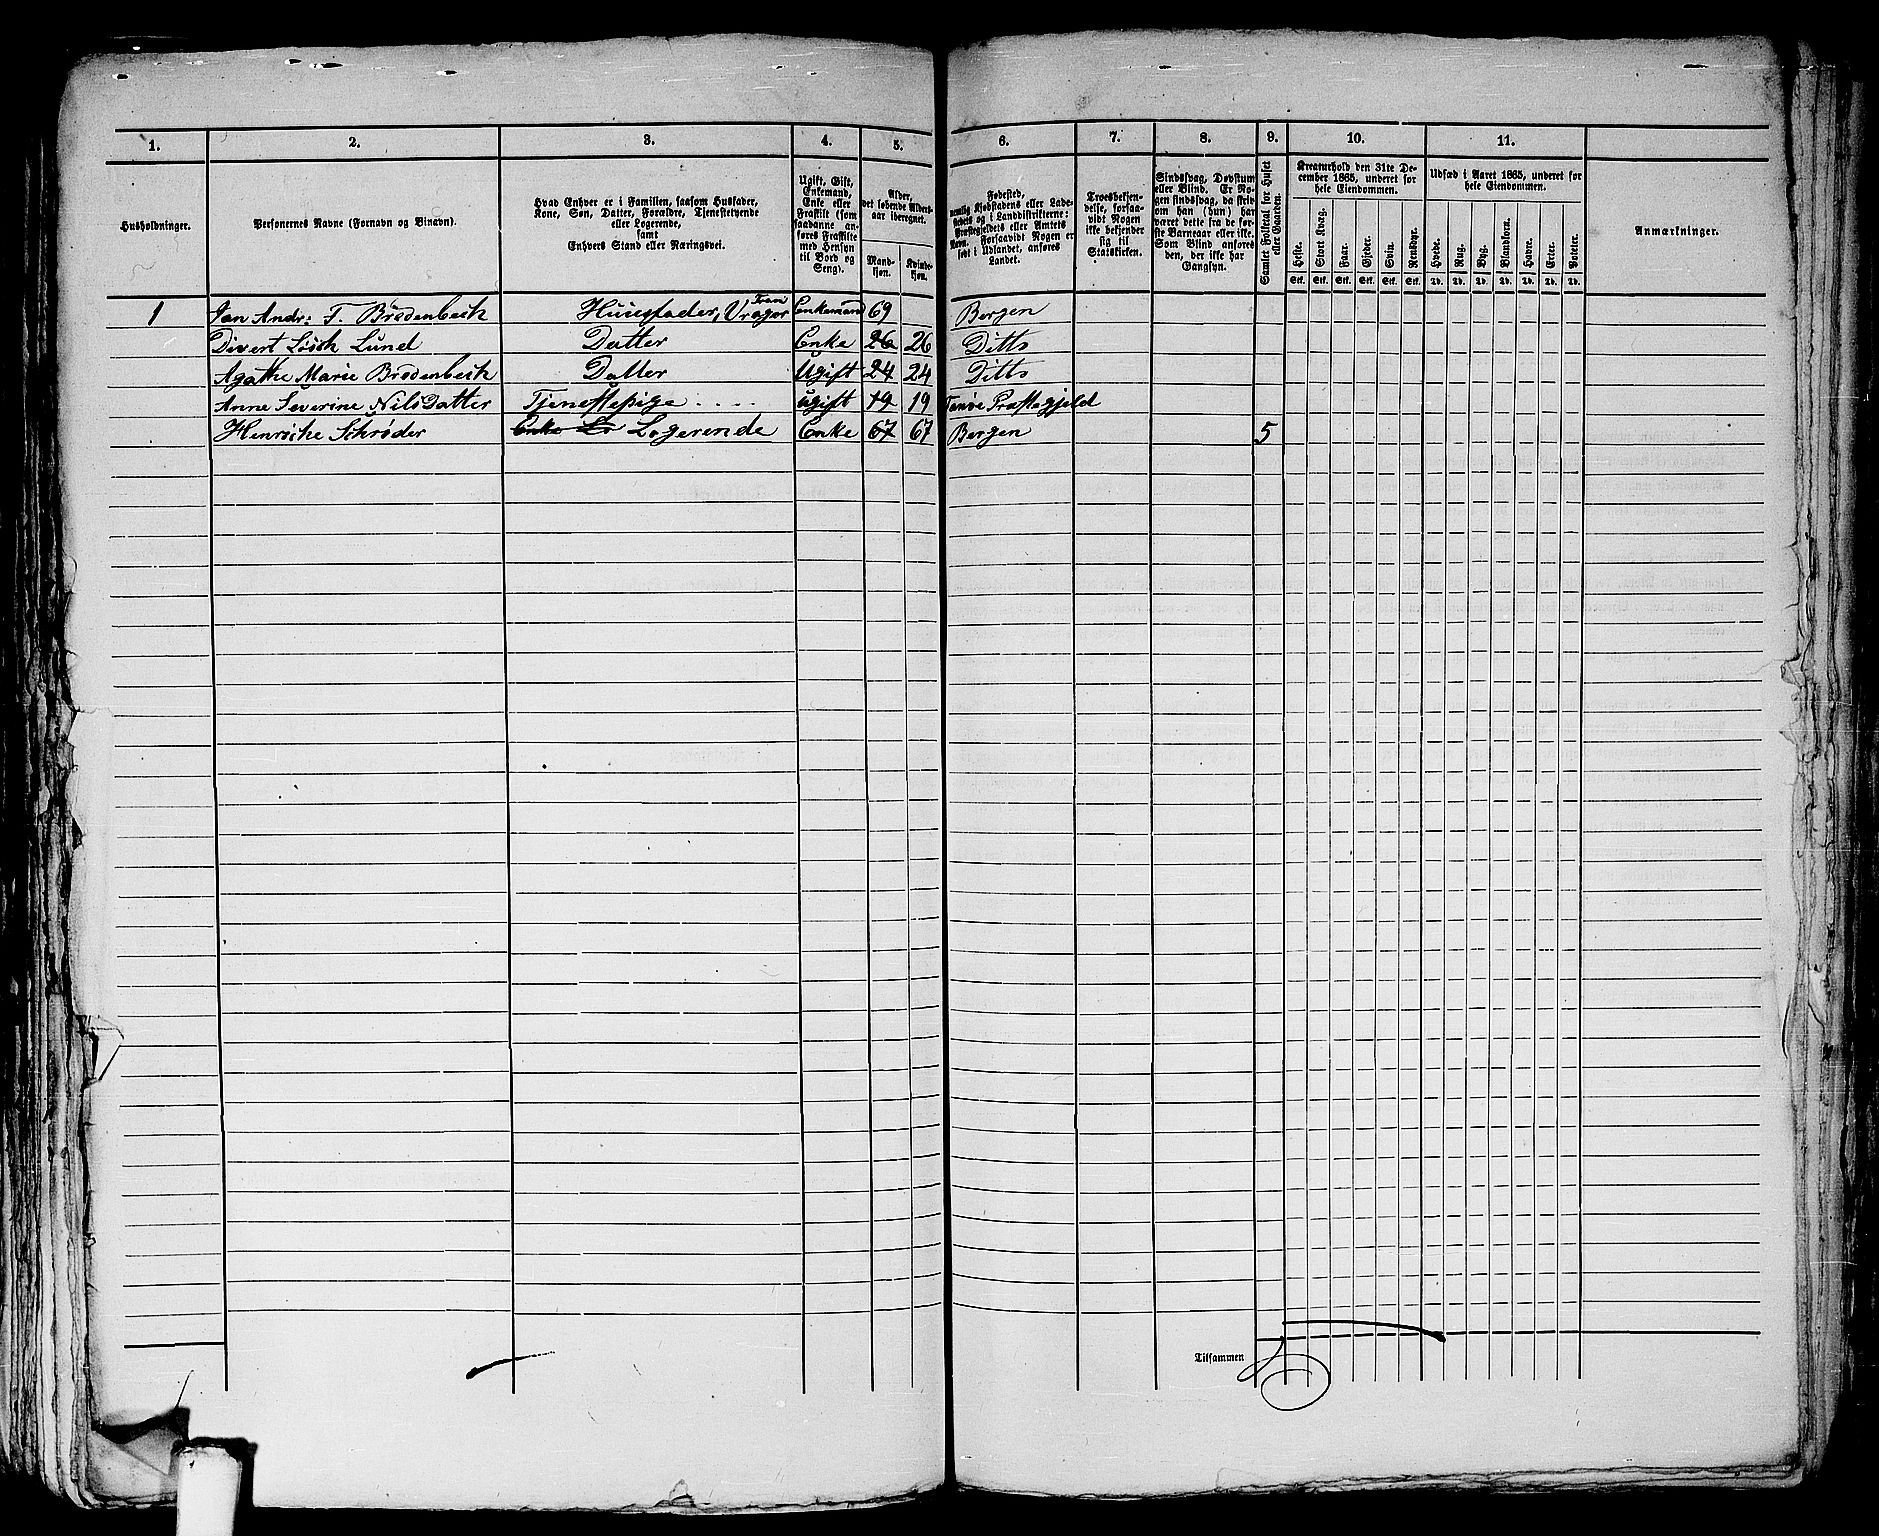 1. 2. 3. 4. 5. 6. 7. 8. 9. 10. 11.
Husholdninger.
Personernes Navne (Fornavn og Binavn).
Hvad Enhver er i Familien, saasom Husfader,
Kone, Søn, Datter, Forældre, Tjenestetyende
eller Logerende,
samt
Enhvers Stand eller Næringsvei.
Ugift, Gift,
Enkemand,
Enke eller
Fraskilt (som
saadanne an-
føres Fraskilte
med Hensyn
til Bord og
Seng).
Alder,
det løbende Alders-
aar iberegnet.
Mand-
kjøn.
Kvinde-
kjøn.
Fødested,
nemlig Kjøbstadens eller Lade-
stedets og i Landdistrikterne:
Præstegjeldets eller Amtets
Navn. Forsaavidt Nogen er
født i Udlandet, anføres
Landet.
Troesbekjen-
delse, forsaa-
vidt Nogen
ikke bekjender
sig til
Statskirken.
Sindssvag, Døvstum
eller Blind. Er No-
gen sindssvag, da skri-
ves om han (hun) har
været dette fra de før-
ste Barneaar eller ikke.
Som Blind anføres
den, der ikke har
Gangsyn.
Samlet Folketal for Huset
eller Gaarden.
Kreaturhold den 31te De-
cember 1865, underet for
hele Eiendommen.
Heste. Stort Kvæg. Faar. Gjeder. Svin. Rensdyr.
Stk. Stk. Stk. Stk. Stk. Stk.
Udsæd i Aaret 1865, underet for
hele Eiendommen.
Hvede. Rug. Byg. Blandkorn. Havre. Erter. Poteter.
Td. Td. Td. Td. Td. Td. Td.
Anmærkninger.
1 Jan Andr: F. Brødenbech Huusfader, Tran Vrager Enkemand 69 Bergen
Divert Lund Datter Enke 26 26 Ditto
Agathe Marie Brødenbech Datter Ugift 24 24 Ditto
Anne Severine NilsDatter Tjenestepige .... ugift 19 19 Præstegjeld
Henrikke Schrøder Enke Logerende Enke 67 67 Bergen 5
Tilsammen